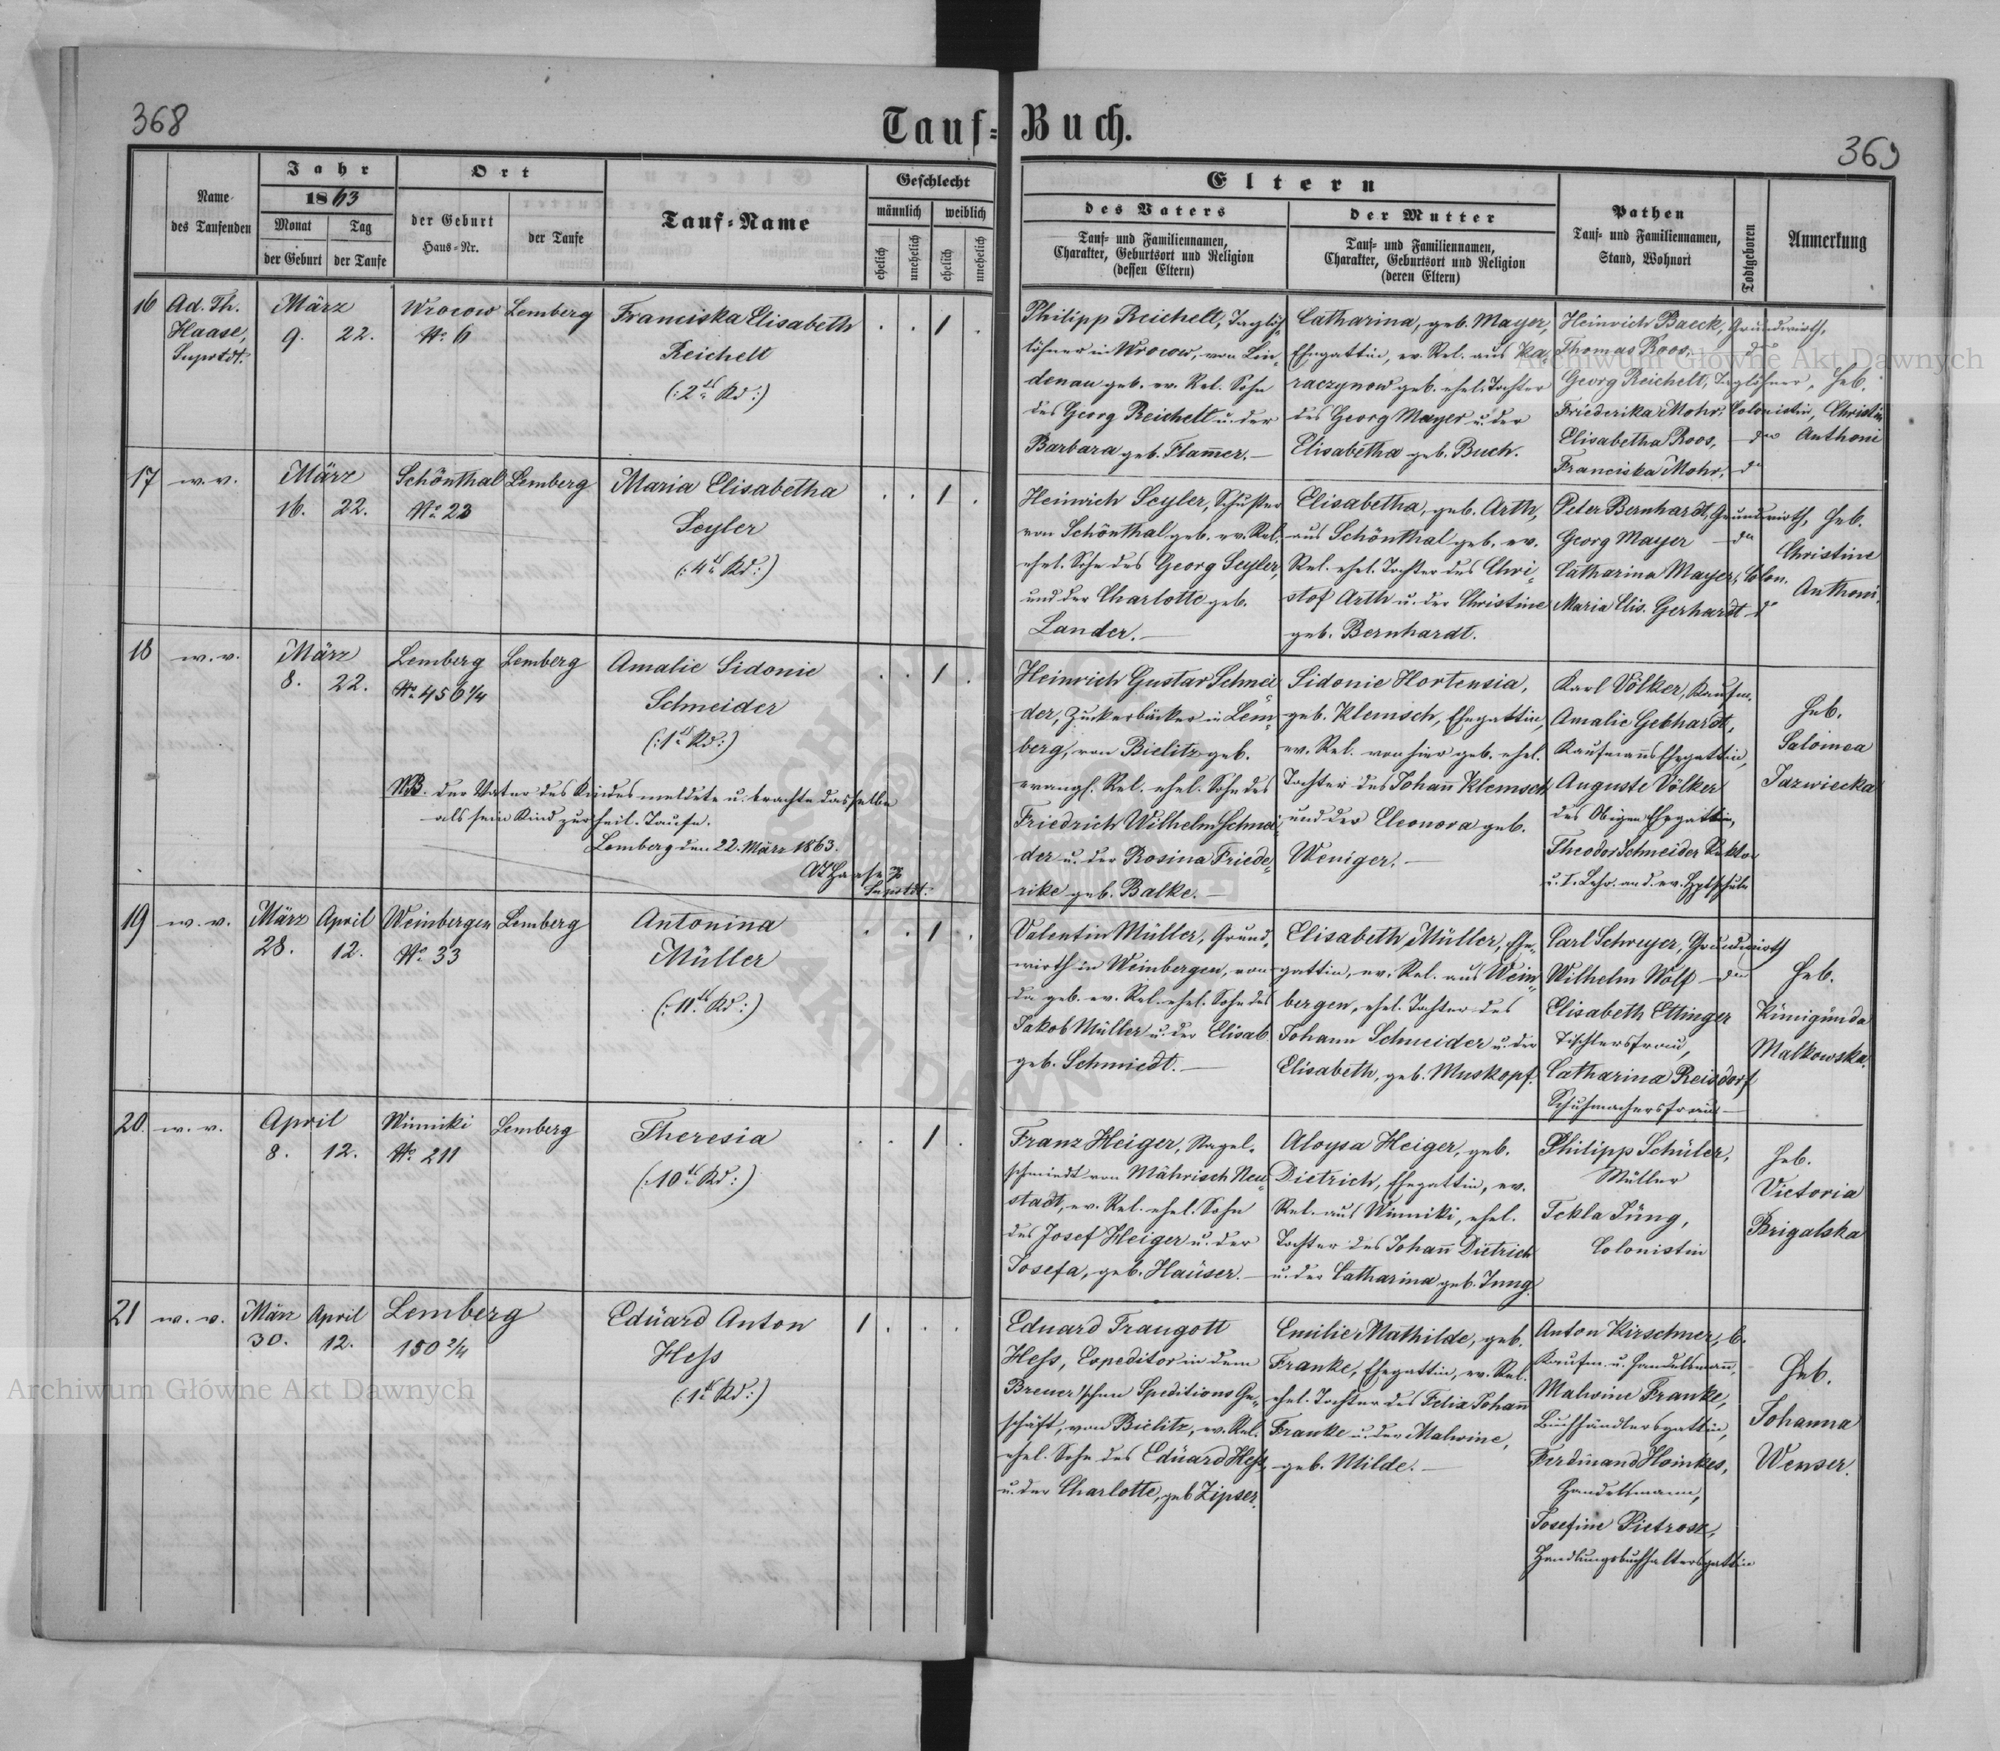 368
Tauf-Buch.
369
Name des Taufenden
Jahr
1863
Monat der Geburt
Tag der Taufe
Ort
der Geburt Haus-Nr.
der Taufe
Tauf-Name
Geschlecht
männlich
weiblich
ehelich
unehelich
ehelich
unehelich
Eltern
des Vaters
Tauf- und Familiennamen,
Charakter, Geburtsort und Religion
(dessen Eltern)
der Mutter
Tauf- und Familiennamen,
Charakter, Geburtsort und Religion
(deren Eltern)
Pathen
Tauf- und Familiennamen,
Stand, Wohnort
Todtgeboren
Anmerkung
16
Ad. Th.
Haase,
Suprtdt.
März
9. 22.
Wrocow
No. 6
Lemberg
Franciska Elisabeth
Reichelt
(: 2tes Kd :)
1
Philipp Reichelt, Taglöh-
löhner in Wrocow, von Lin-
denau geb. ev. Rel. Sohn
des Georg Reichelt u. der
Barbara geb. Flam̄er. —
Catharina, geb. Mayer,
Ehegattin, ev. Rel. aus Ka-
raczynow geb. ehel. Tochter
des Georg Mayer u. der
Elisabetha geb. Buch.
Heinrich Baeck, Grundwirth,
Thomas Roos, do
Georg Reichelt, Taglöhner,
Friederika Mohr, Colonistin,
Elisabetha Roos, do
Franciska Mohr, do
Heb.
Christin
Anthoni
17
w. v.
März
16. 22.
Schönthal
No. 23
Lemberg
Maria Elisabetha
Seyler
(: 4tes Kd :)
1
Heinrich Seyler, Schuster
von Schönthal geb. ev. Rel.
ehel. Sohn des Georg Seyler,
und der Charlotte geb.
Lander. —
Elisabetha, geb. Arth,
aus Schönthal geb. ev.
Rel. ehel. Tochter des Chri-
stof Arth u. der Christine
geb. Bernhardt.
Peter Bernhardt, Grundwirth,
Georg Mayer — do
Catharina Mayer, Colon.
Maria Elis. Gerhardt do
Heb.
Christine
Anthoni.
18
w. v.
März
8. 22.
Lemberg
No. 456 1/4
Lemberg
Amalie Sidonie
Schneider
(: 1tes Kd :)
1
NB. der Vater des Kindes meldete u. brachte dasselbe
als sein Kind zur heil. Taufe.
Lemberg den 22. März 1863.
Haase
Suprtdt.
Heinrich Gustav Schnei
der, Zuckerbäcker in Lem-
berg, von Bielitz geb.
evangl. Rel. ehel. Sohn des
Friedrich Wilhelm Schnei-
der u. der Rosina Friede-
rike geb. Balke. —
Sidonie Hortensia,
geb. Klemsch, Ehegattin,
ev. Rel. von hier geb. ehel.
Tochter des Johan̄ Klemsch
und der Eleonora geb.
Weniger. —
Karl Völker, Kaufm.
Amalie Gebhardt,
Kaufmanns Ehegattin,
Auguste Völker
des Obigen Ehegattin,
Theodor Schneider Rektor
u. I. Lehr. an d. ev. Hptschule
Heb.
Salomea
Jazwiecka
19
w. v.
März April
28. 12.
Weinbergen
No. 33
Lemberg
Antonina
Müller
(: 11tes Kd :)
1
Valentin Müller, Grund-
wirth in Weinbergen, von
da geb. ev. Rel. ehel. Sohn des
Jakob Müller u. der Elisab.
geb. Schmiedt. —
Elisabeth Müller, Ehe-
gattin, ev. Rel. aus Wein-
bergen, ehel. Tochter des
Johann Schneider u. der
Elisabeth, geb. Muskopf.
Carl Schreyer, Grundwirth
Wilhelm Wolf — do
Elisabeth Ettinger
Tischlersfrau,
Catharina Reisdorf
Schuhmachersfrau —
Heb.
Kunigunda
Malkowska.
20.
w. v.
April
8. 12.
Winniki
No. 211
Lemberg
Theresia
(: 10tes Kd :)
1
Franz Heiger, Nagel-
schmiedt von Mährisch Neu-
stadt, ev. Rel. ehel. Sohn
des Josef Heiger u. der
Josefa, geb. Häuser. —
Aloysa Heiger, geb.
Dietrich, Ehegattin, ev.
Rel. aus Winniki, ehel.
Tochter des Johan̄ Dietrich
u. der Catharina geb. Jung.
Philipp Schüler,
Müller
Tekla Jung,
Colonistin
Heb.
Victoria
Brigalska
21
w. v.
März April
30. 12.
Lemberg
150 2/4
Eduard Anton
Hess
(: 1tes Kd :)
1
Eduard Traugott
Hess, Expeditor in dem
Breuer'schen Speditions Ge-
schäft, von Bielitz, ev. Rel.
ehel. Sohn des Eduard Hess
u. der Charlotte, geb Zipser.
Emilie Mathilde, geb.
Franke, Ehegattin, ev. Rel.
ehel. Tochter des Felix Johan̄
Franke u. der Malwine,
geb. Milde. —
Anton Kirschner, b.
Kaufm. u. Handelsmann,
Malwine Franke,
Buchhändlersgattin,
Ferdinand Hoinkes,
Handelsmann,
Josefine Pietrosz,
Handlungsbuchhaltersgattin
Heb.
Johanna
Wenser.
Archiwum Główne Akt Dawnych
Archiwum Główne Akt Dawnych